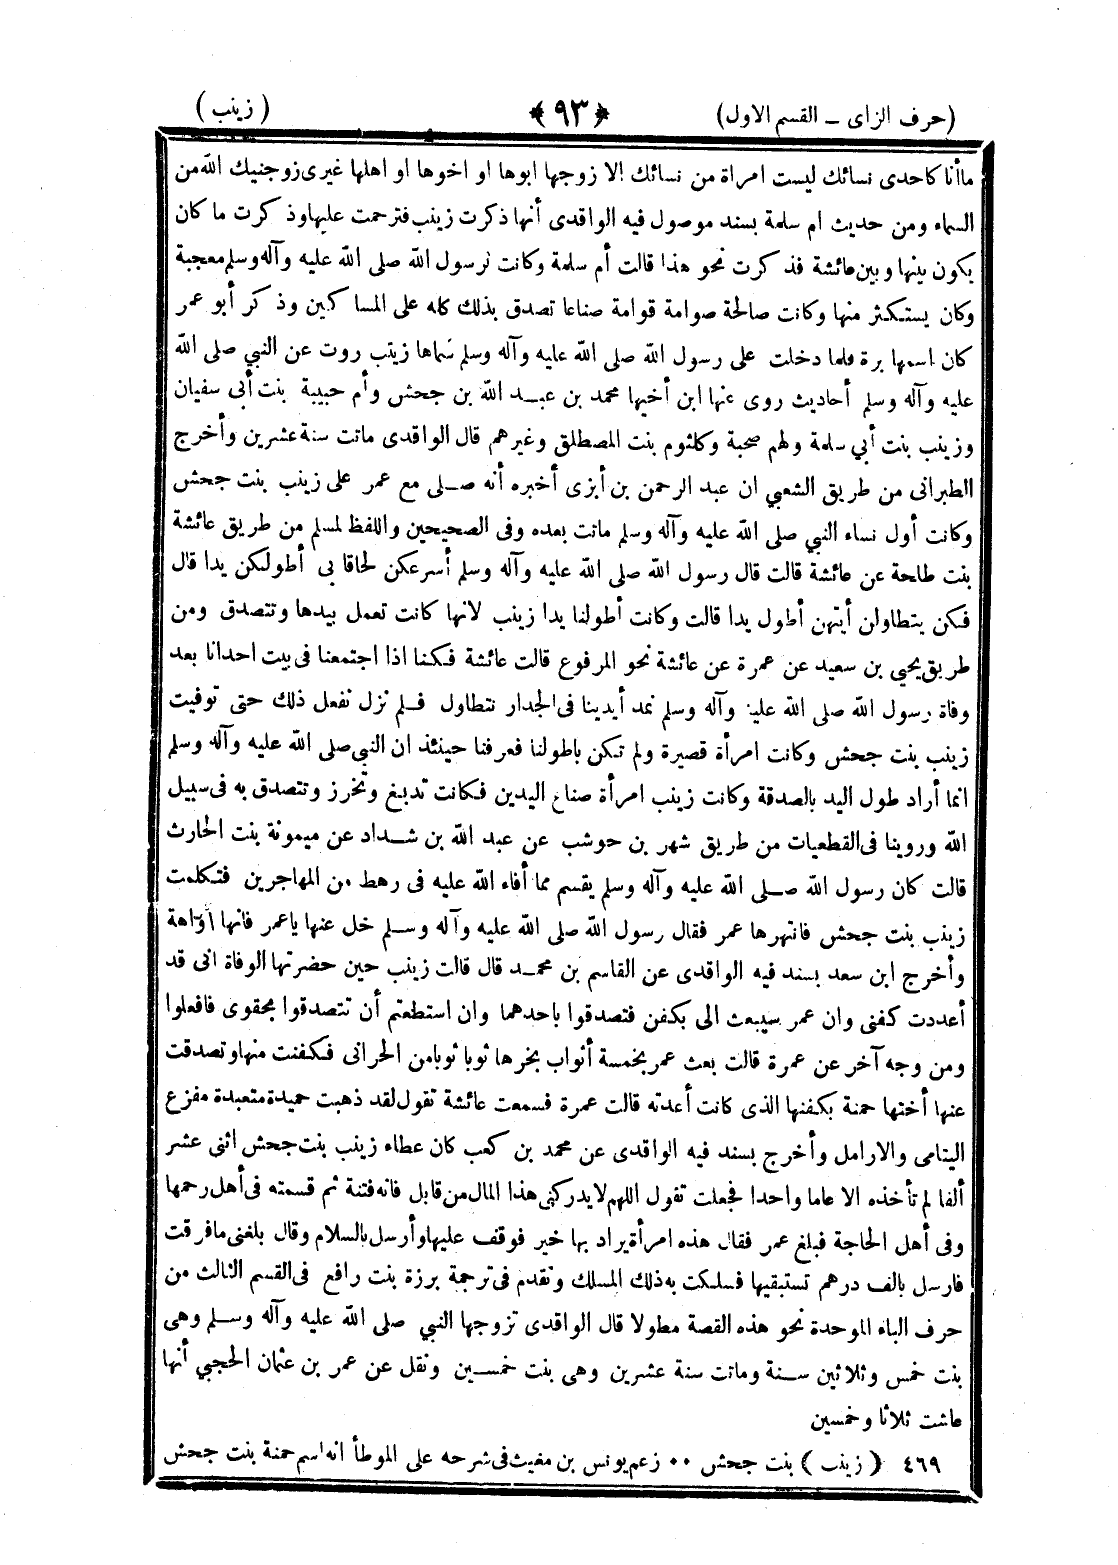 (حرف الزاى ــ القسم الاول) ﴿٩٣﴾ (زينب)
ماأنا كاحدى نسائك ليست امراة من نسائك الا زوجها ابوها او اخوها او اهلها غيرى زوجنيك الله من
السماء ومن حديث ام سلمة بسند موصول فيه الواقدى أنها ذكرت زينب فترحمت عليها وذكرت ما كان
يكون بينها وبين عائشة فذكرت نحو هذا قالت أم سلمة وكانت لرسول الله صلى الله عليه وآله وسلم معجبة
وكان يستكثر منها وكانت صالحة صوامة قوامة صناعا تصدق بذلك كله على المساكين وذكر أبو عمر
كان اسمها برة فلما دخلت على رسول الله صلى الله عليه وآله وسلم سماها زينب روت عن النبي صلى الله
عليه وآله وسلم أحاديث روى عنها ابن أخيها محمد بن عبد الله بن جحش وأم حبيبة بنت أبي سفيان
وزينب بنت أبي سلمة ولهم صحبة وكلثوم بنت المصطلق وغيرهم قال الواقدى ماتت سنة عشرين وأخرج
الطبرانى من طريق الشعبي ان عبد الرحمن بن أبزى أخبره أنه صلى مع عمر على زينب بنت جحش
وكانت أول نساء النبي صلى الله عليه وآله وسلم ماتت بعده وفى الصحيحين واللفظ لمسلم من طريق عائشة
بنت طلحة عن عائشة قالت قال رسول الله صلى الله عليه وآله وسلم أسرعكن لحاقا بى أطولكن يدا قال
فكن يتطاولن أيتهن أطول يدا قالت وكانت أطولنا يدا زينب لانها كانت تعمل بيدها وتتصدق ومن
طريق يحيي بن سعيد عن عمرة عن عائشة نحو المرفوع قالت عائشة فكنا اذا اجتمعنا فى بيت احدانا بعد
وفاة رسول الله صلى الله عليه وآله وسلم نمد أيدينا فى الجدار نتطاول فلم نزل نفعل ذلك حتى توفيت
زينب بنت جحش وكانت امرأة قصيرة ولم تكن باطولنا فعرفنا حينئذ ان النبي صلى الله عليه وآله وسلم
انما أراد طول اليد بالصدقة وكانت زينب امرأة صناع اليدين فكانت تدبغ وتخرز وتتصدق به فى سبيل
الله وروينا فى القطعيات من طريق شهر بن حوشب عن عبد الله بن شداد عن ميمونة بنت الحارث
قالت كان رسول الله صلى الله عليه وآله وسلم يقسم مما أفاء الله عليه فى رهط من المهاجرين فتكلمت
زينب بنت جحش فانتهرها عمر فقال رسول الله صلى الله عليه وآله وسلم خل عنها ياعمر فانها أوّاهة
وأخرج ابن سعد بسند فيه الواقدى عن القاسم بن محمد قال قالت زينب حين حضرتها الوفاة انى قد
أعددت كفنى وان عمر سيبعث الى بكفن فتصدقوا باحدهما وان استطعتم أن تتصدقوا بحقوى فافعلوا
ومن وجه آخر عن عمرة قالت بعث عمر بخمسة أثواب يخرها ثوبا ثوبا من الحرانى فكفنت منها وتصدقت
عنها أختها حمنة بكفنها الذى كانت أعدته قالت عمرة فسمعت عائشة تقول لقد ذهبت حميدة متعبدة مفزع
اليتامى والارامل وأخرج بسند فيه الواقدى عن محمد بن كعب كان عطاء زينب بنت جحش اثنى عشر
ألفا لم تأخذه الا عاما واحدا فجعلت تقول اللهم لا يدركنى هذا المال من قابل فانه فتنة ثم قسمته فى أهل رحمها
وفى أهل الحاجة فبلغ عمر فقال هذه امرأة يراد بها خير فوقف عليها وأرسل بالسلام وقال بلغنى مافرقت
فارسل بالف درهم تستبقيها فسلكت به ذلك المسلك وتقدم فى ترجمة برزة بنت رافع فى القسم الثالث من
حرف الباء الموحدة نحو هذه القصة مطولا قال الواقدى تزوجها النبي صلى الله عليه وآله وسلم وهى
بنت خمس وثلاثين سنة وماتت سنة عشرين وهى بنت خمسين ونقل عن عمر بن عثمان الحجبي أنها
عاشت ثلاثا وخمسين
٤٦٩ (زينب) بنت جحش ٠٠ زعم يونس بن مغيث فى شرحه على الموطأ انه اسم حمنة بنت جحش